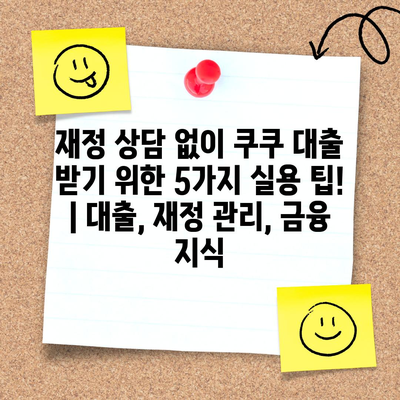 재정 상담 없이 쿠쿠 대출
받기 위한 5가지 실용 팁!
| 대출, 재정 관리, 금융
지식